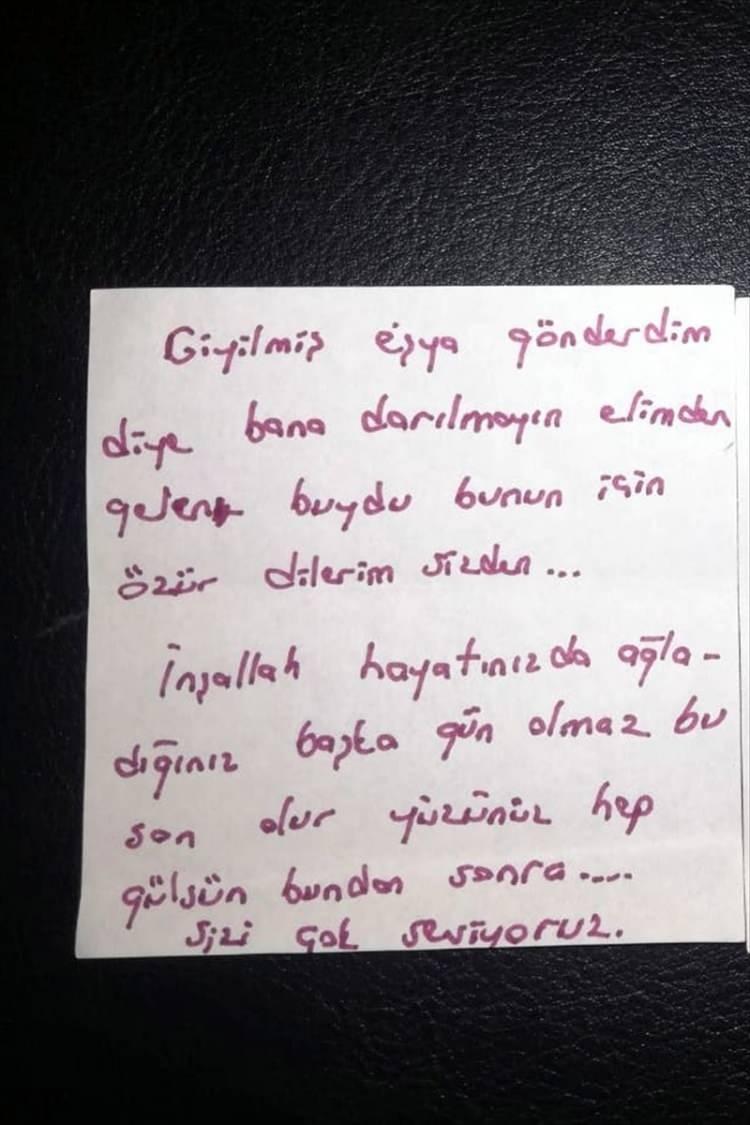 Giyilmiş eşya gönderdim
diye bana darılmayın elimden
gelen buydu bunun için
özür dilerim sizden...
İnşallah hayatınızda ağla-
dığınız başka gün olmaz bu
son olur yüzünüz hep
gülsün bundan sonra.....
Sizi çok seviyoruz.